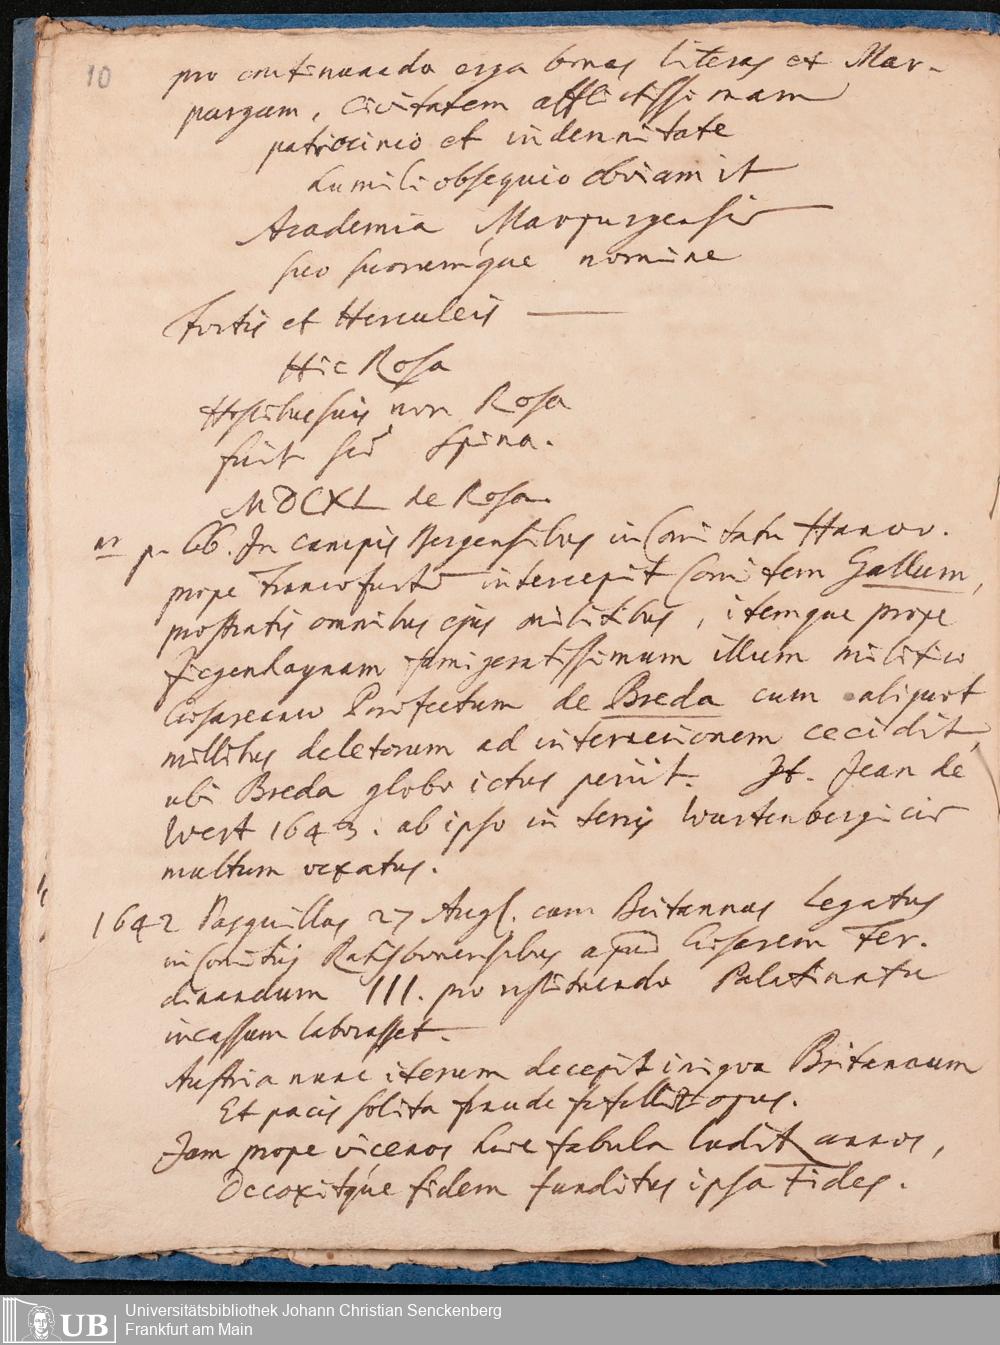 10
pro continuando erga bonas literas et Mar-
purgam, civitatem afflictissimam
patrocinio et indemnitate
humili obsequio obviam it
Academia Marpurgensis
suo suorumque nomine
Fortis et Herculeis
Hic Rosa
Hostibus suis non Rosa
fuit sed Spina.
MDCXL de Rosa.
p. 66. In campis Bergensibus in Comitatu Hanov.
prope Francofurtu intercepit Comitem Gallum,
prostratis omnibus ejus militibus, itemque prope
Ziegenhaynam famigeratissimum illum militiae
Caesareanae Praefectum de Breda cum aliquot
millibus deletorum ad internecionem cecidit,
ubi Breda globo ictus periit. It. Jean de
Wert 1643. ab ipso in terris Wurtenbergicis
multum vexatus.
1642 Pasquillus 27 Aug. cum Britannus Legatus
in Comitiis Ratisbonensibus apud Caesarem Fer.
dinandum III. pro restituendo Palatinatu
incassum laborasset.
Austria nunc iterum decepit iniqua Britannum
Et pacis solita fraude fefellit opus.
Jam prope vicenos haec fabula ludit annos,
Occoxitque fidem funditus ipsa Fides.
UB
Universitätsbibliothek Johann Christian Senckenberg
Frankfurt am Main